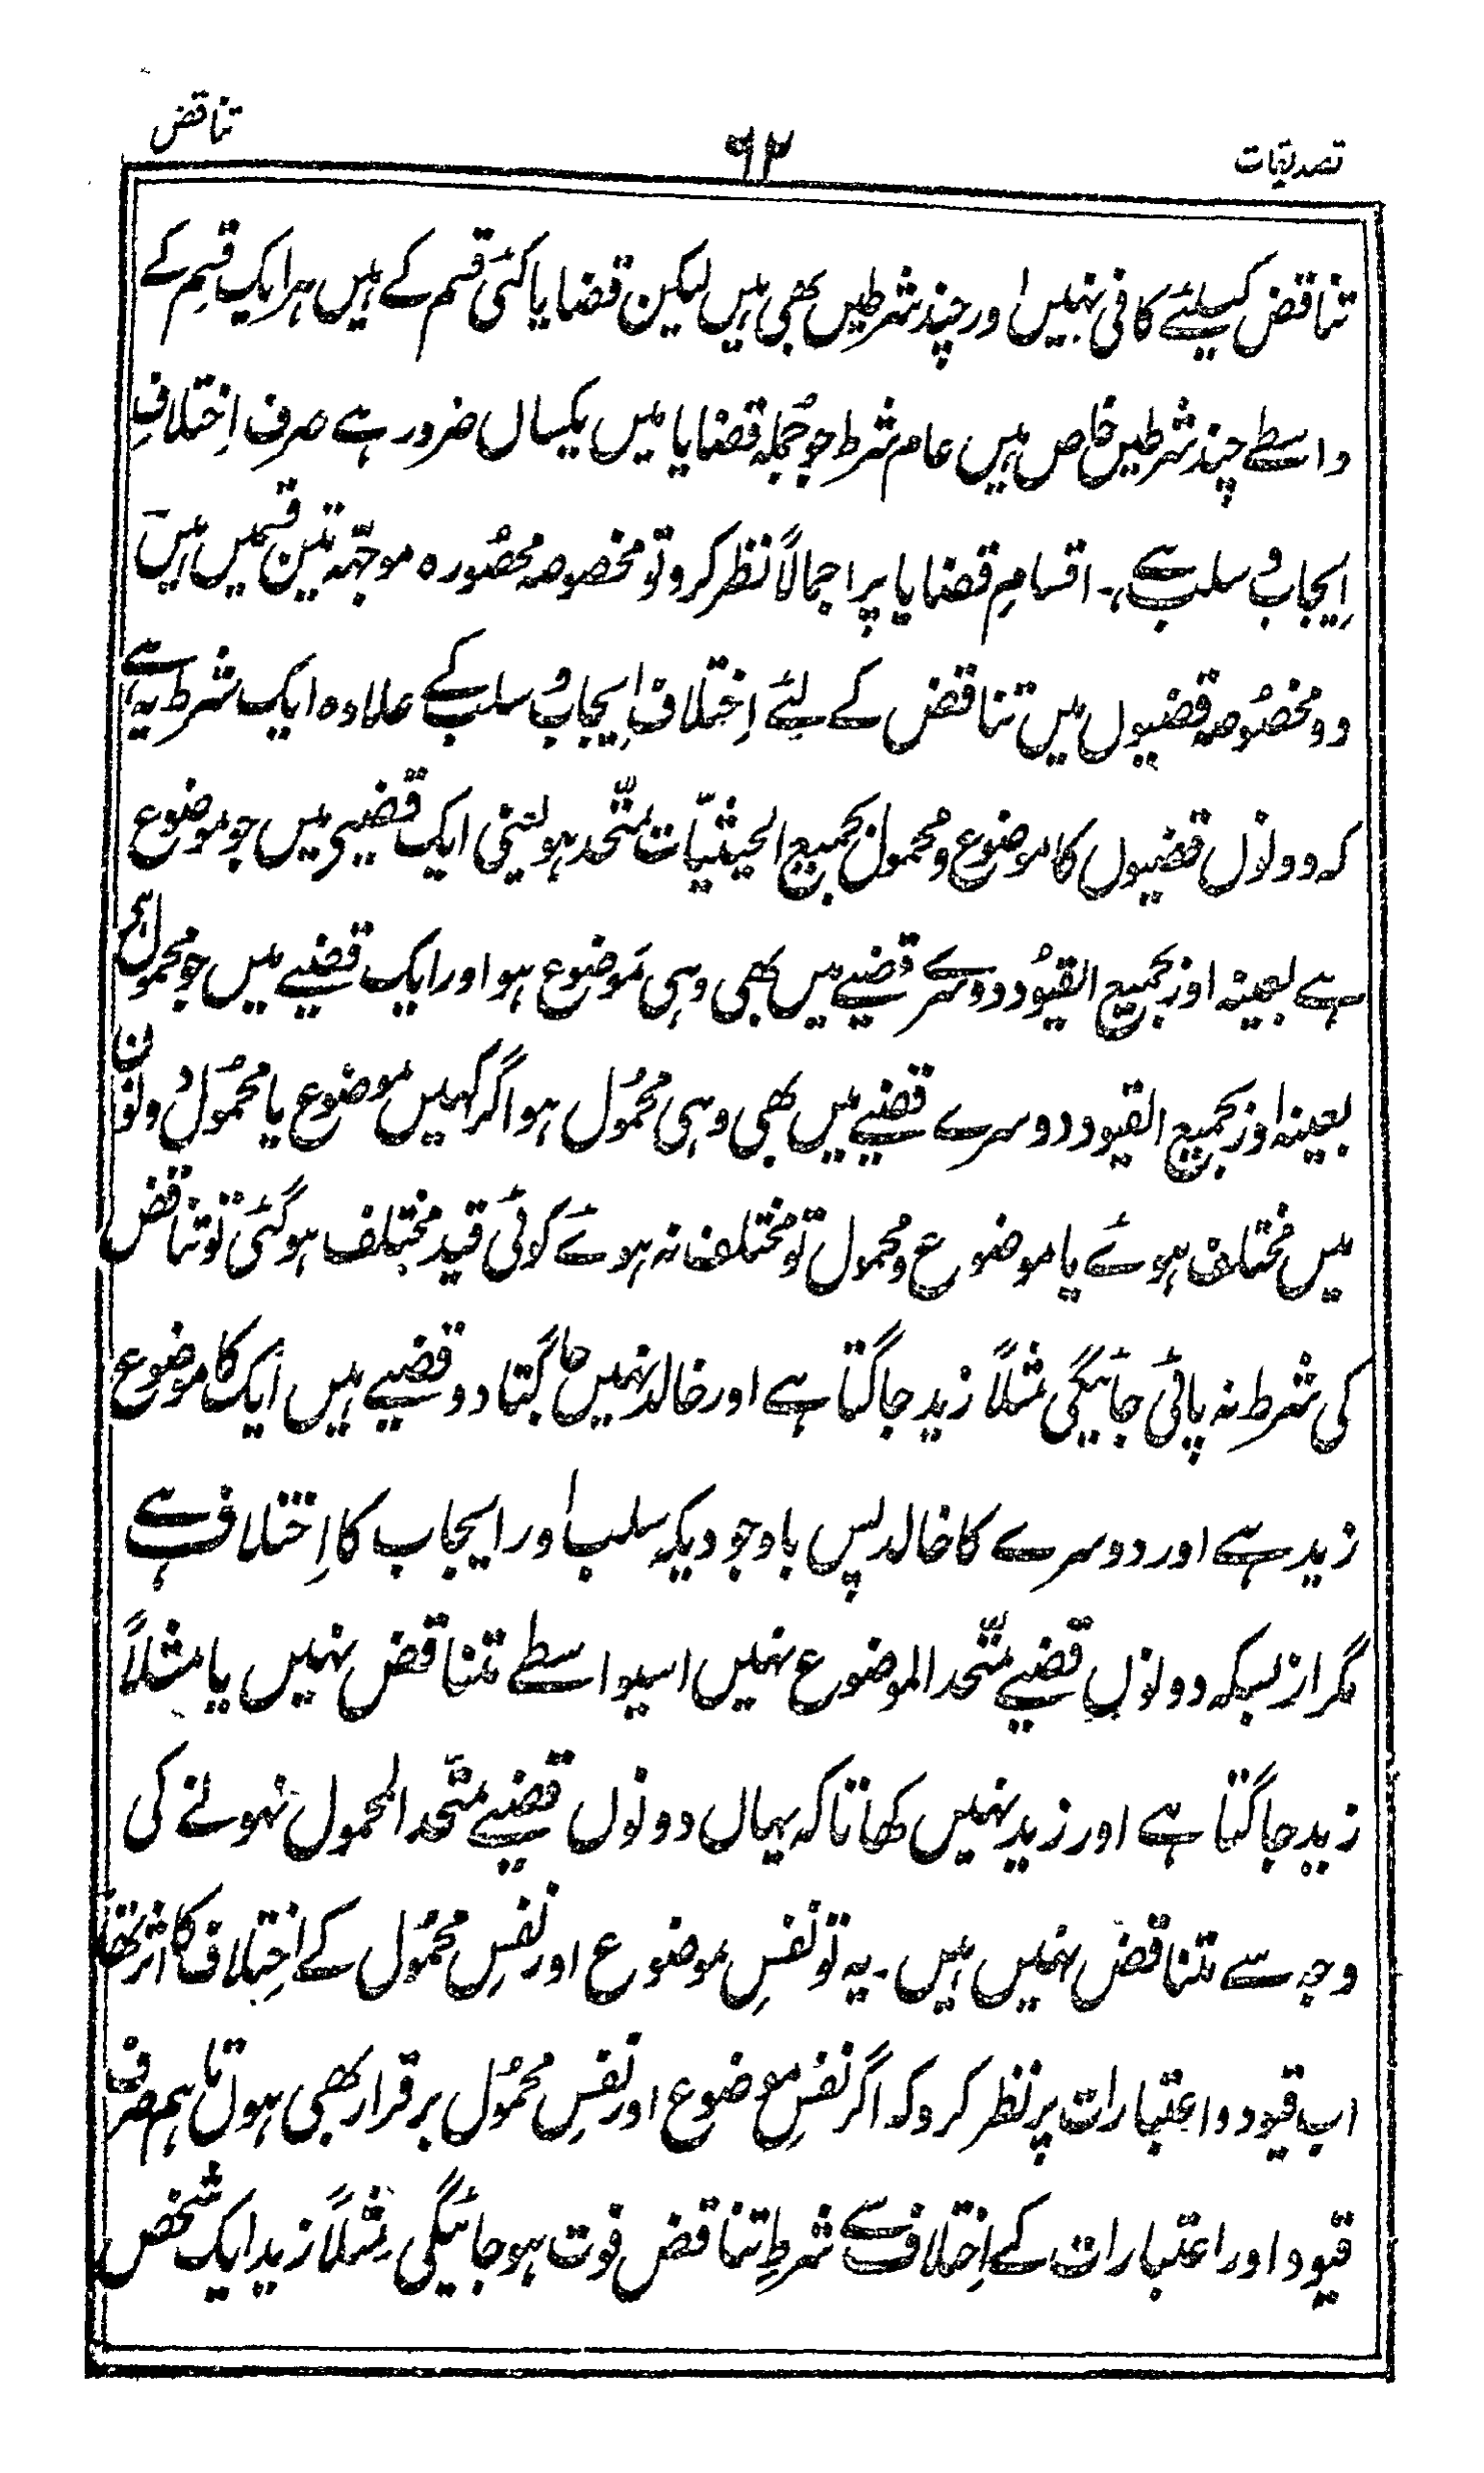 تصدیقات
۹۲
تناقض
تناقض کیلئے کافی نہیں اور چند شرطیں بھی ہیں لیکن قضایا کئی قسم کے ہیں ہر ایک قِسم کے
واسطے چند شرطیں خاص ہیں عام شرط جو جُملہ قضایا میں یکساں ضرور ہے صرف اِختلافِ
اِیجاب و سلب ہے۔ اقسامِ قضایا پر اجمالاً نظر کرو تو مخصوصہ محصُورہ موجہّہ تین قسمیں ہیں
دو مخصُوصہ قضیوں میں تناقض کے لئے اِختلاف اِیجاب و سلب کے علاوہ ایک شرط یہ ہے
کہ دونوں قضیوں کا موضوع و محمول بجمیع الحیثیّات متّحد ہو لیعنی ایک قضیے میں جو موضوع
ہے بعینہ اور بجمیع القیُود دوسرے قضیے میں بھی وہی مَوضوع ہو اور ایک قضیے میں جو محمول ہی
بعینہ اور بجمیع القیود دوسرے قضیے میں بھی وہی محمُول ہو اگر کہیں موضوع یا محمُول دونوں
میں مختلف ہوئے یا موضوع و محمول تو مختلف نہ ہوئے کوئی قید مختلف ہو گئی تو تناقض
کی شرط نہ پائی جائیگی مثلاً زید جاگتا ہے اور خالد نہیں جاگتا دو قضیے ہیں ایک کا موضوع
زید ہے اور دوسرے کا خالد پس باوجودیکہ سلب اور ایجاب کا اِختلاف ہے
مگر از بسکہ دونوں قضیے متّحد الموضوع نہیں اسیواسطے تناقض نہیں یا مثلاً
زید جاگتا ہے اور زید نہیں کھاتا کہ یہاں دونوں قضیے متّحد المحمول نہونے کی
وجہ سے تناقض نہیں ہیں۔ یہ تو نفسِ موضوع اور نفسِ محمُول کے اِختلاف کا اثر تھا
اب قیود و اعتبارات پر نظر کرو کہ اگر نفسِ موضوع اور نفسِ محمُول برقرار بھی ہو تاہم صرف
قیود اور اعتبارات کے اِختلاف سے شرطِ تناقض فوت ہو جائیگی مثلاً زید ایک شخص